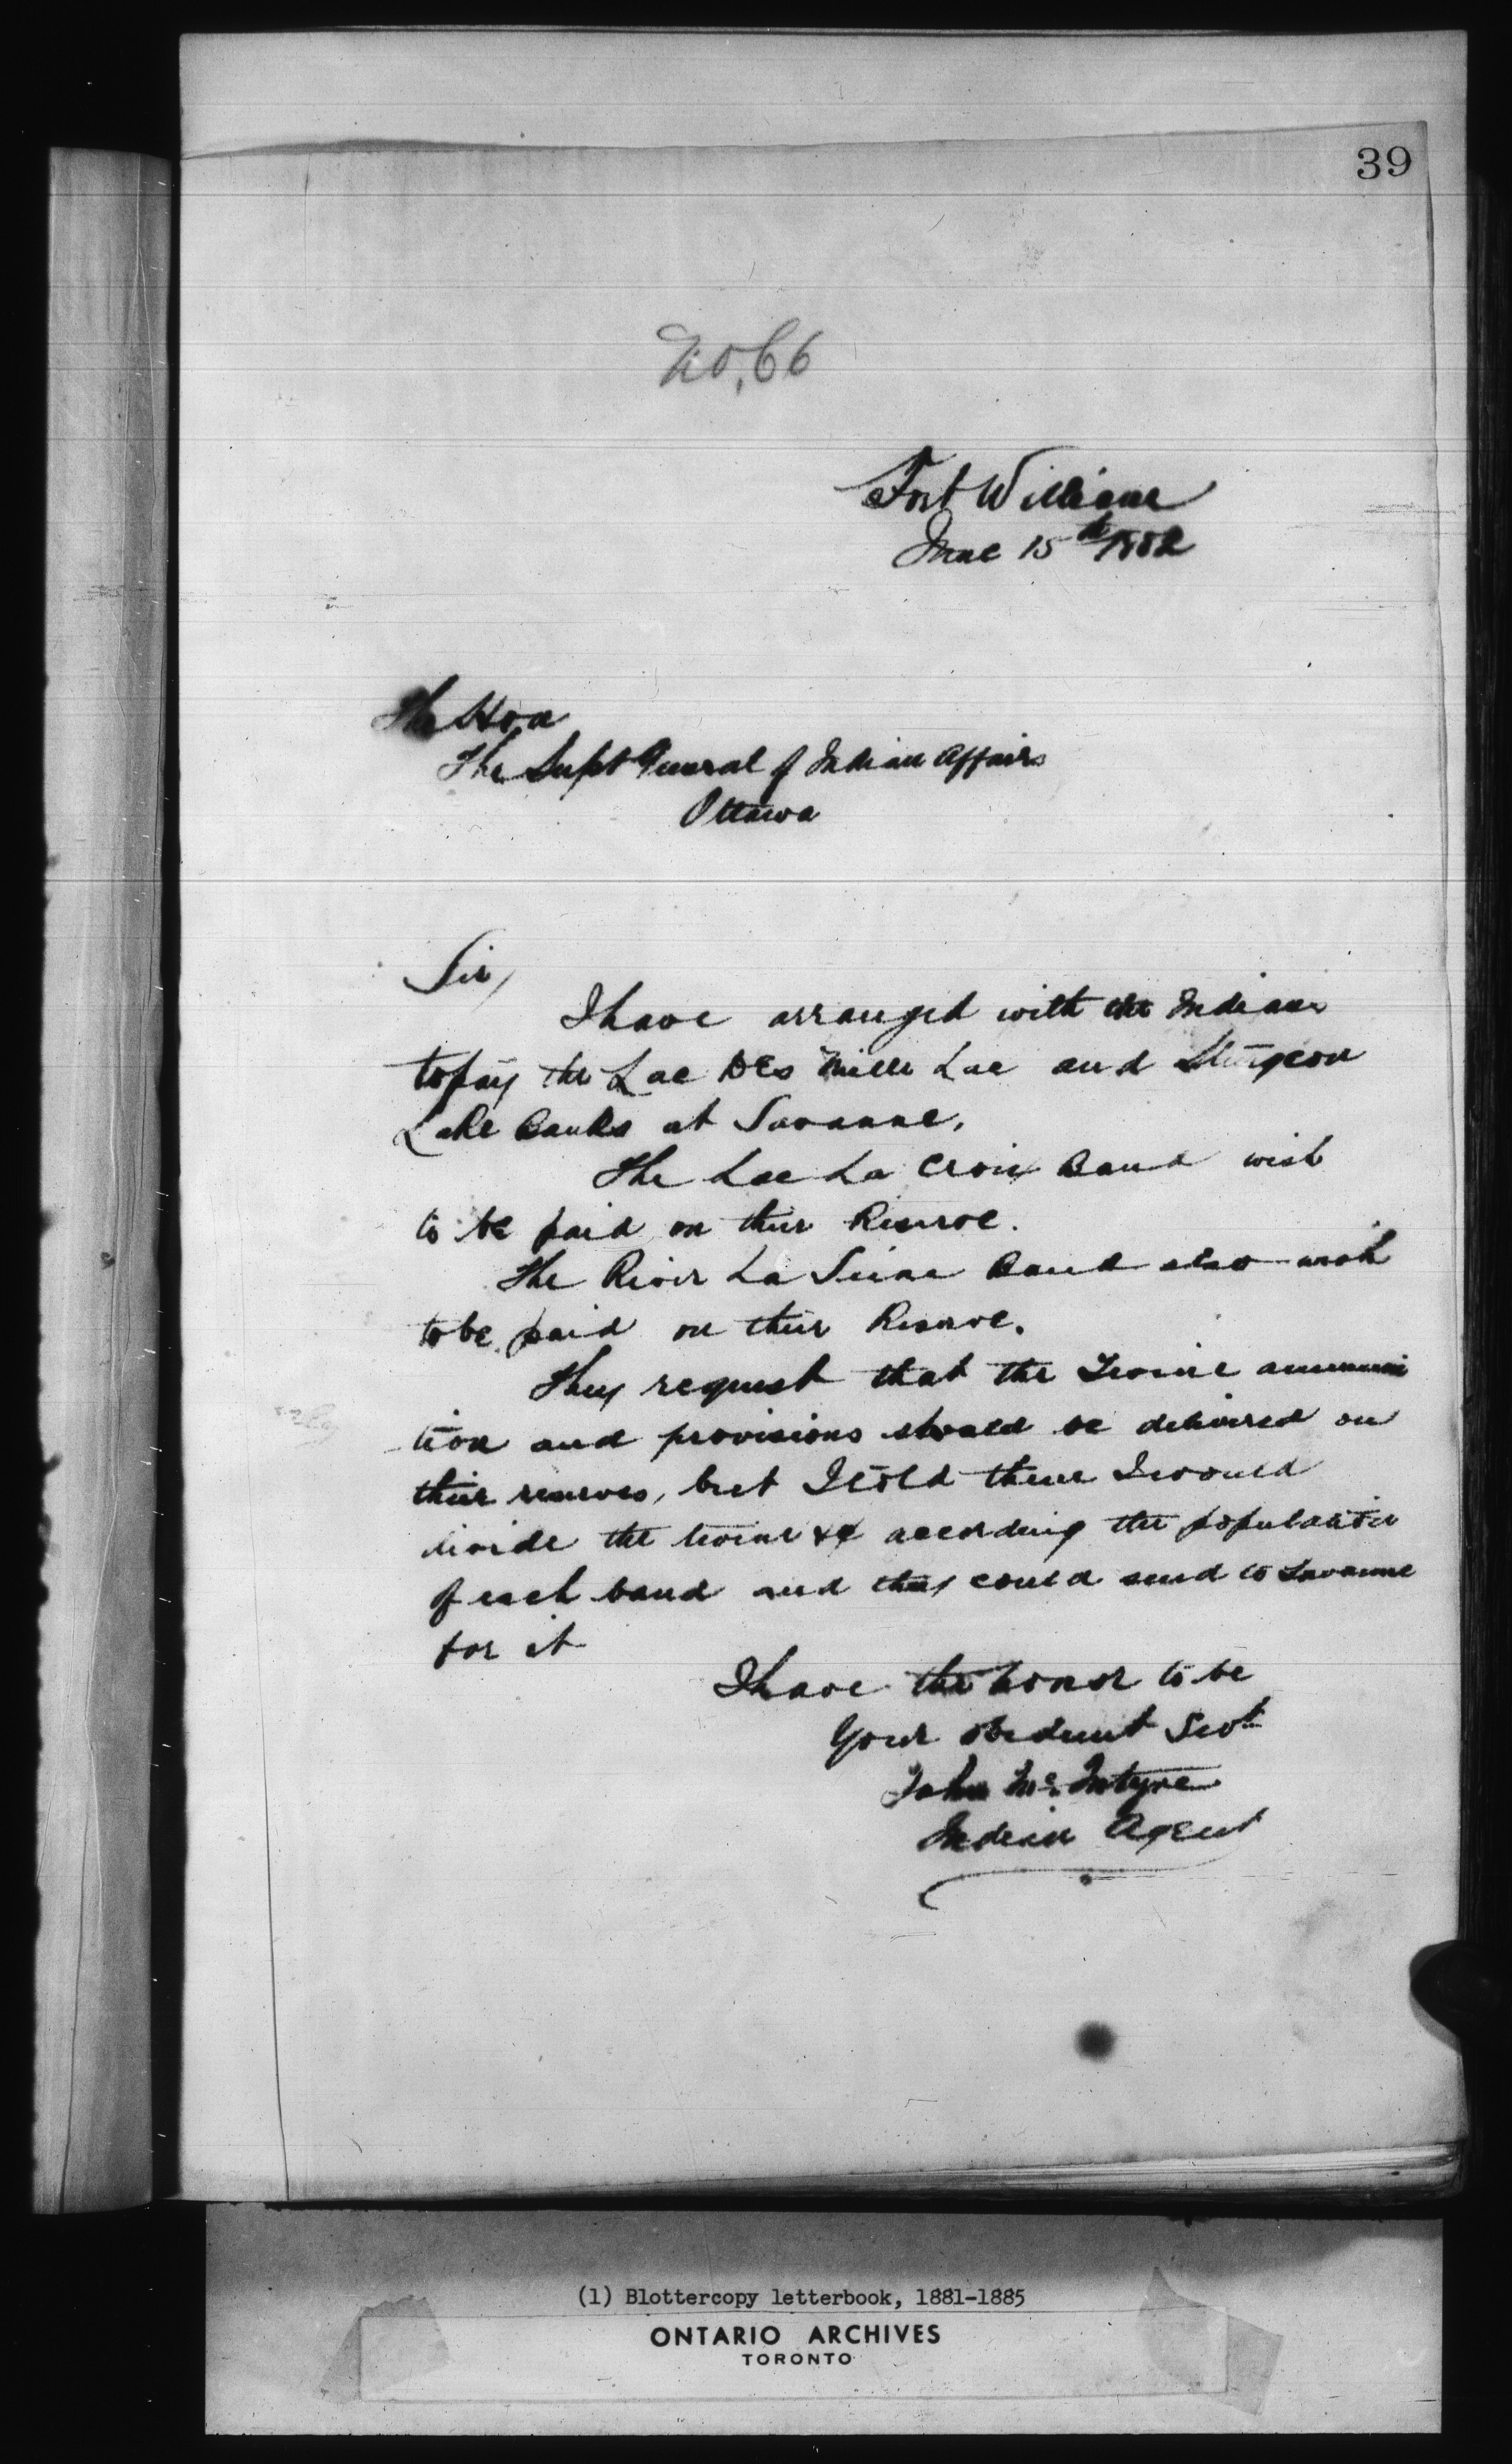 39
No. 66
Fort William
June 15th 1882
The Hon
The Supt General of Indian Affairs
Ottawa
Sir,
I have arranged with the Indians
to pay the Lac Des Mille Lac and Sturgeon
Lake Bands at Savanne.
The Lac La Croix Band wish
to be paid on their Reserve.
The River La Seine Band also wish
to be paid on their Reserve.
They request that the Twine ammuni
tion and provisions should be delivered on
their reserves, but I told them I would
divide the twine &c according the population
of each band and they could send to Savanne
for it
I have the honor to be
Your obedient Servt
John McIntyre
Indian Agent
(1) Blottercopy letterbook, 1881-1885
ONTARIO ARCHIVES
TORONTO